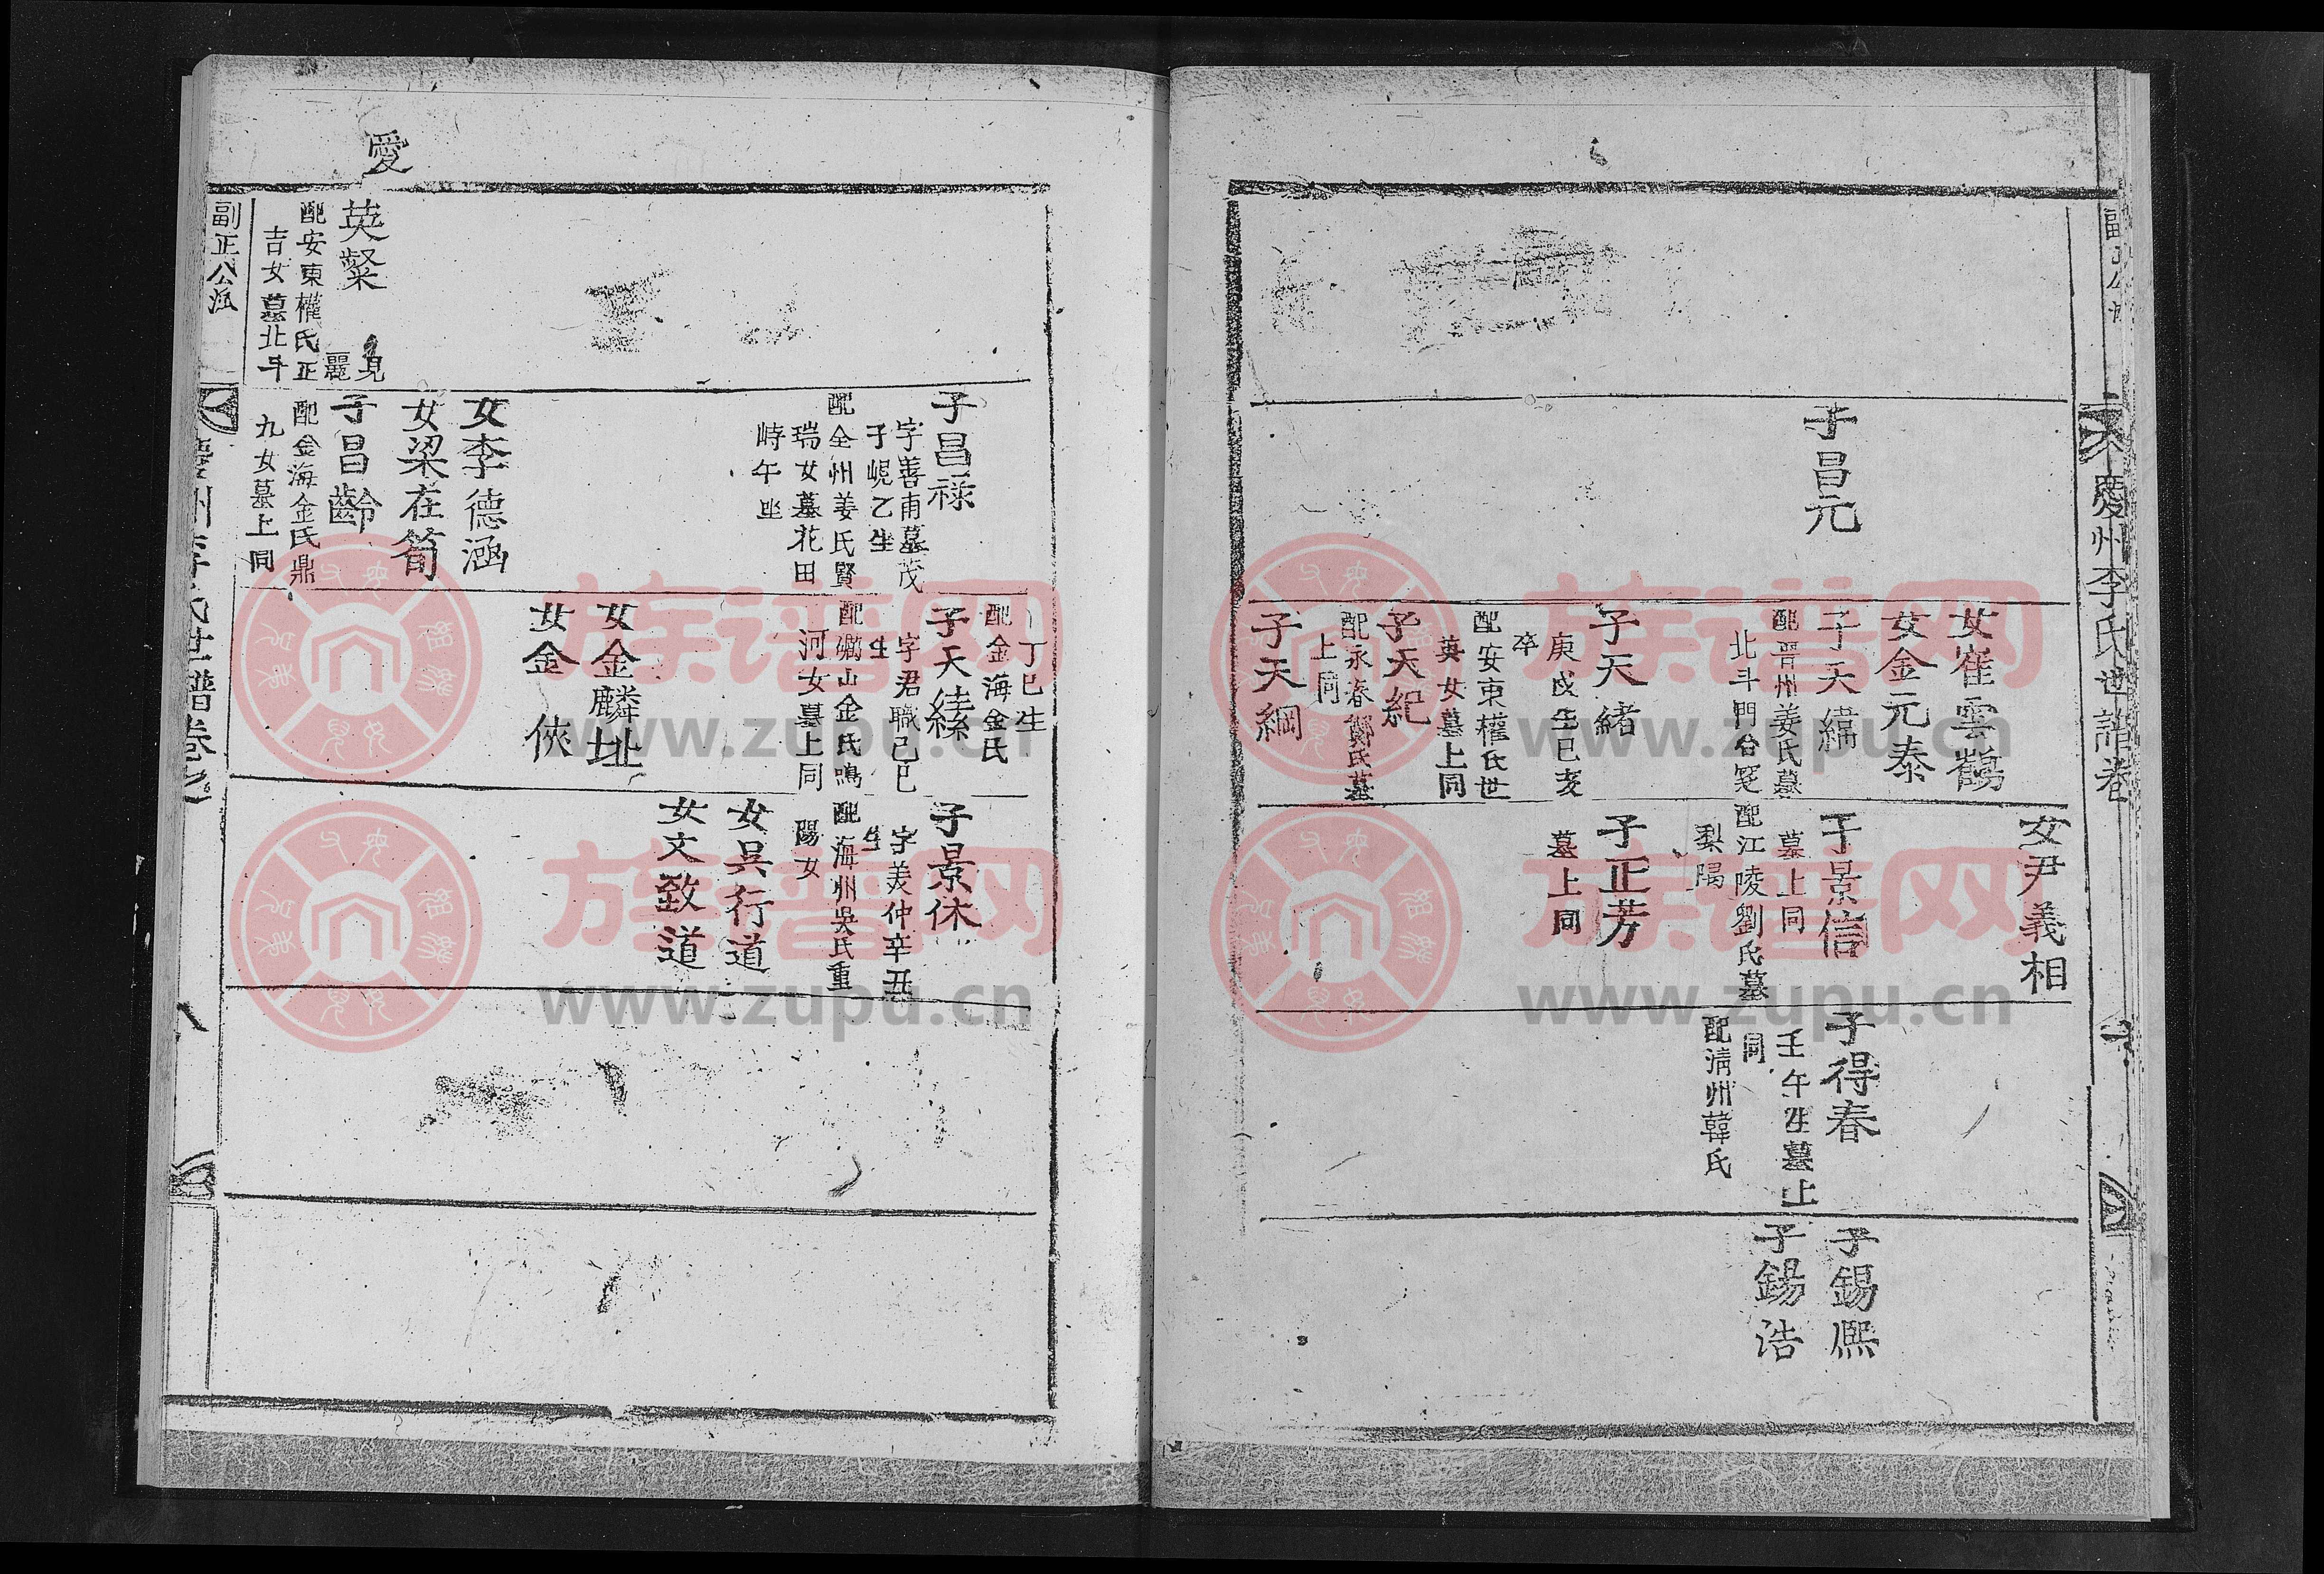 慶州李氏世譜卷
子昌元
女崔雲鶴
女金元泰
子天緯
配晋州姜氏墓
北斗門台㐫
子天緖
庚戌生巳亥
卒
配安東權氏世
英女墓上同
子天紀
配永春鄭氏墓
上同
子天綱
女尹義相
子景信
墓上同
配江陵劉氏墓
梨陽
子正芳
墓上同
子得春
壬午生墓上
同
配淸州韓氏
子錫熈
子錫浩
子昌祿
字善甫墓茂
子峴乙坐
配全州姜氏賢
瑞女墓花田
峙午坐
女李德涵
女梁在筍
子昌齡
配金海金氏鼎
九女墓上同
丁巳生
配金海金氏
子天績
字君職己巳
生
配碭山金氏鳴
河女墓上同
女金麟址
女金 俠
子景休
字美仲辛丑
生
配海州吳氏重
陽女
女吳行道
女文致道
愛
英粲
見
麗
配安東權氏正
吉女墓北斗
副正公派
慶州李氏世譜卷之
八
族谱网
www.zupu.cn
族谱网
www.zupu.cn
族谱网
www.zupu.cn
族谱网
www.zupu.cn